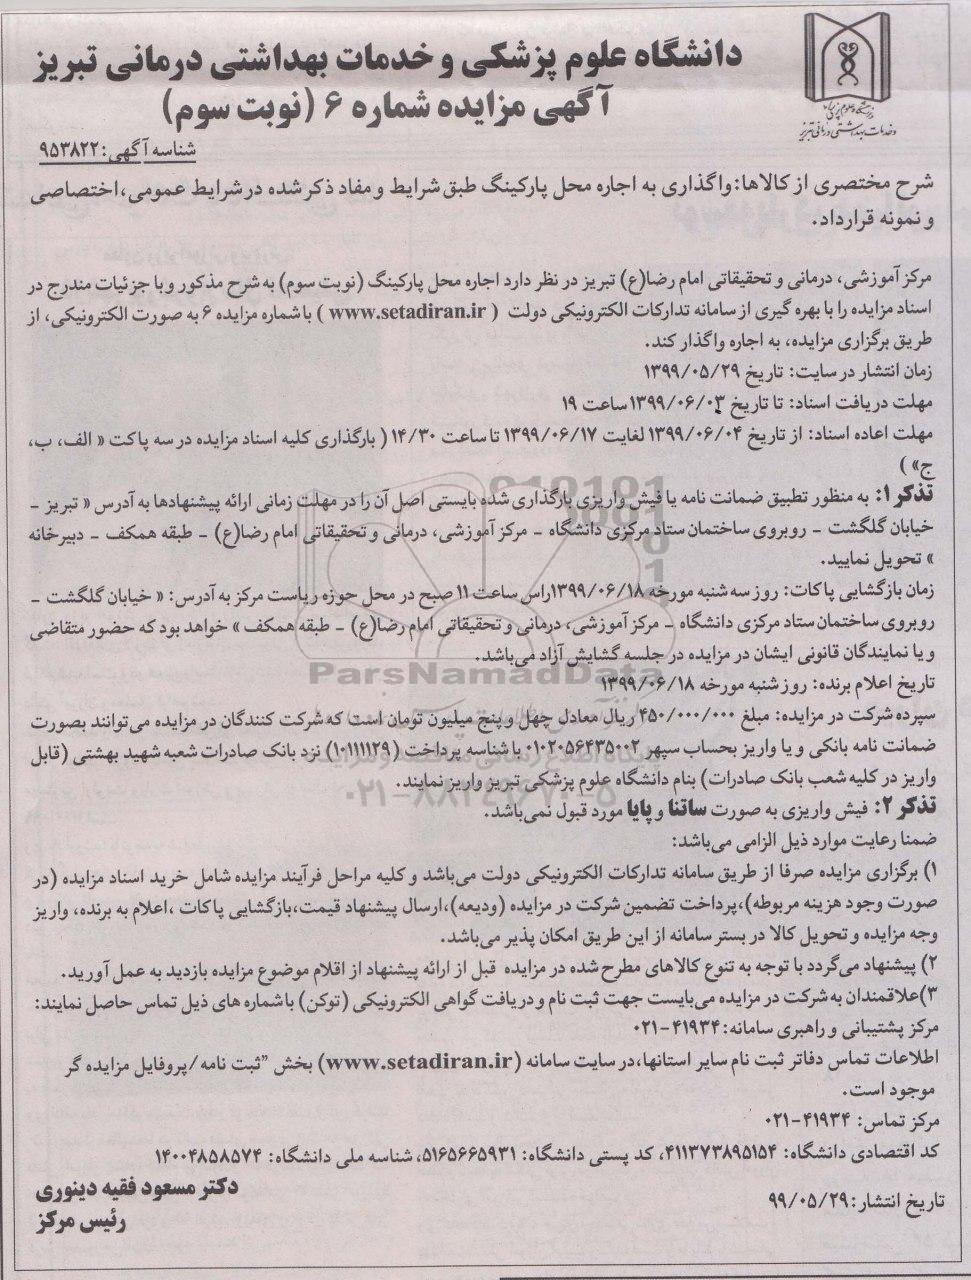 دانشگاه علوم پزشکی و خدمات بهداشتی درمانی تبریز
آگهی مزایده شماره ۶ (نوبت سوم)
دانشگاه علوم پزشکی
و خدمات بهداشتی درمانی تبریز
شناسه آگهی: ۹۵۳۸۲۲
شرح مختصری از کالاها: واگذاری به اجاره محل پارکینگ طبق شرایط و مفاد ذکر شده در شرایط عمومی، اختصاصی
و نمونه قرارداد.
مرکز آموزشی، درمانی و تحقیقاتی امام رضا(ع) تبریز در نظر دارد اجاره محل پارکینگ (نوبت سوم) به شرح مذکور و با جزئیات مندرج در
اسناد مزایده را با بهره گیری از سامانه تدارکات الکترونیکی دولت ( www.setadiran.ir ) با شماره مزایده ۶ به صورت الکترونیکی، از
طریق برگزاری مزایده، به اجاره واگذار کند.
زمان انتشار در سایت: تاریخ ۱۳۹۹/۰۵/۲۹
مهلت دریافت اسناد: تا تاریخ ۱۳۹۹/۰۶/۰۳ ساعت ۱۹
مهلت اعاده اسناد: از تاریخ ۱۳۹۹/۰۶/۰۴ لغایت ۱۳۹۹/۰۶/۱۷ تا ساعت ۱۴/۳۰ ( بارگذاری کلیه اسناد مزایده در سه پاکت « الف، ب،
ج» )
تذکر ۱: به منظور تطبیق ضمانت نامه یا فیش واریزی بارگذاری شده بایستی اصل آن را در مهلت زمانی ارائه پیشنهادها به آدرس « تبریز -
خیابان گلگشت - روبروی ساختمان ستاد مرکزی دانشگاه - مرکز آموزشی، درمانی و تحقیقاتی امام رضا(ع) - طبقه همکف - دبیرخانه
» تحویل نمایید.
زمان بازگشایی پاکات: روز سه شنبه مورخه ۱۳۹۹/۰۶/۱۸ راس ساعت ۱۱ صبح در محل حوزه ریاست مرکز به آدرس: « خیابان گلگشت -
روبروی ساختمان ستاد مرکزی دانشگاه - مرکز آموزشی، درمانی و تحقیقاتی امام رضا(ع) - طبقه همکف » خواهد بود که حضور متقاضی
و یا نمایندگان قانونی ایشان در مزایده در جلسه گشایش آزاد می‌باشد.
ParsNamadData
تاریخ اعلام برنده: روز شنبه مورخه ۱۳۹۹/۰۶/۱۸
سپرده شرکت در مزایده: مبلغ ۴۵۰/۰۰۰/۰۰۰ ریال معادل چهل و پنج میلیون تومان است که شرکت کنندگان در مزایده می‌توانند بصورت
ضمانت نامه بانکی و یا واریز بحساب سپهر ۰۱۰۲۰۵۶۴۳۵۰۰۲ با شناسه پرداخت (۱۰۱۱۱۱۲۹) نزد بانک صادرات شعبه شهید بهشتی (قابل
واریز در کلیه شعب بانک صادرات) بنام دانشگاه علوم پزشکی تبریز واریز نمایند.
۰۲۱-۸۸۳۴۹۶۷۰-۵
تذکر ۲: فیش واریزی به صورت ساتنا و پایا مورد قبول نمی‌باشد.
ضمنا رعایت موارد ذیل الزامی می‌باشد:
۱) برگزاری مزایده صرفا از طریق سامانه تدارکات الکترونیکی دولت می‌باشد و کلیه مراحل فرآیند مزایده شامل خرید اسناد مزایده (در
صورت وجود هزینه مربوطه)،پرداخت تضمین شرکت در مزایده (ودیعه)،ارسال پیشنهاد قیمت،بازگشایی پاکات ،اعلام به برنده، واریز
وجه مزایده و تحویل کالا در بستر سامانه از این طریق امکان پذیر می‌باشد.
۲) پیشنهاد می‌گردد با توجه به تنوع کالاهای مطرح شده در مزایده قبل از ارائه پیشنهاد از اقلام موضوع مزایده بازدید به عمل آورید.
۳)علاقمندان به شرکت در مزایده می‌بایست جهت ثبت نام و دریافت گواهی الکترونیکی (توکن) با شماره های ذیل تماس حاصل نمایند:
مرکز پشتیبانی و راهبری سامانه: ۴۱۹۳۴-۰۲۱
اطلاعات تماس دفاتر ثبت نام سایر استانها،در سایت سامانه (www.setadiran.ir) بخش "ثبت نامه/پروفایل مزایده گر
موجود است.
مرکز تماس: ۴۱۹۳۴-۰۲۱
کد اقتصادی دانشگاه: ۴۱۱۳۷۳۸۹۵۱۵۴، کد پستی دانشگاه: ۵۱۶۵۶۶۵۹۳۱، شناسه ملی دانشگاه: ۱۴۰۰۴۸۵۸۵۷۴
تاریخ انتشار: ۹۹/۰۵/۲۹
دکتر مسعود فقیه دینوری
رئیس مرکز